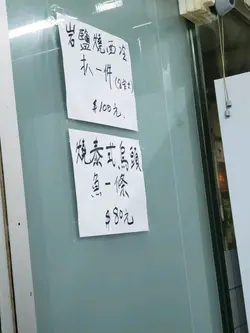 岩鹽燒西冷
扒一件
$100元
燒泰式烏頭
魚一條
$80元